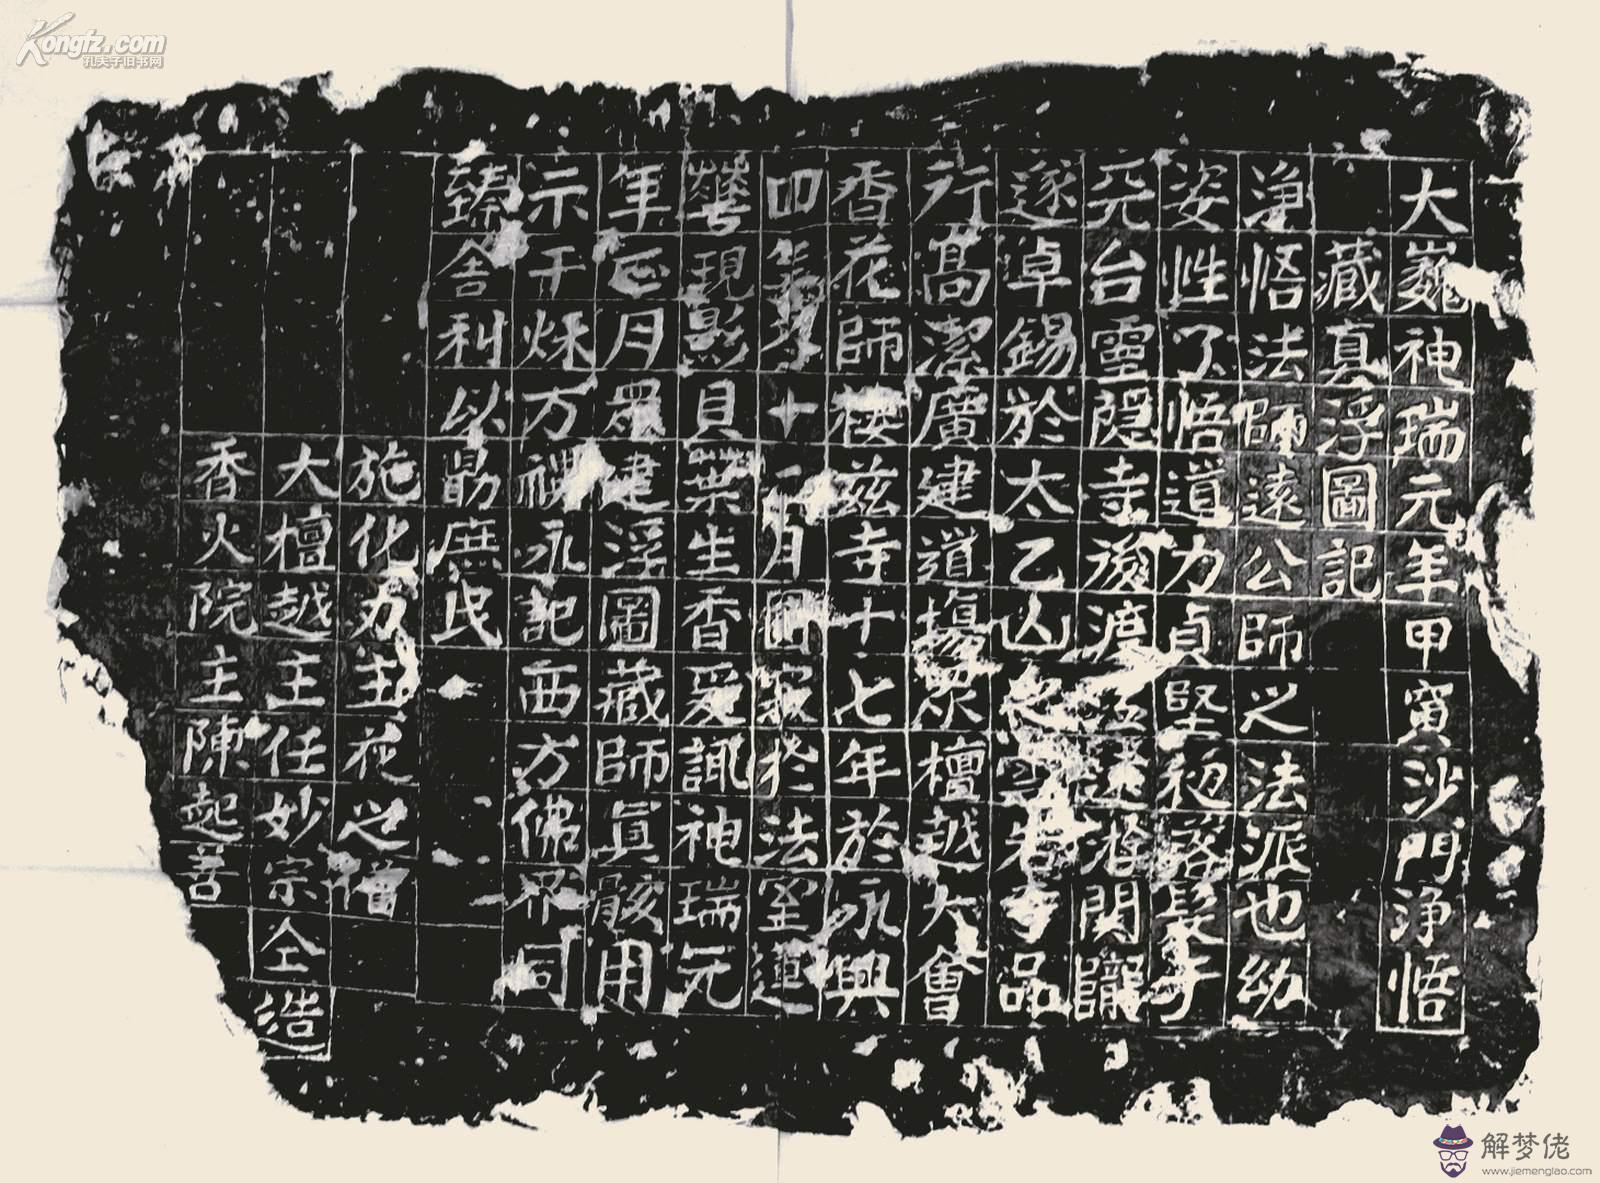 大巍神瑞元年甲寅沙門淨悟
藏真浮圖記
淨悟法師遠公師之法派也幼
姿性了悟道力貞堅初落髮于
元台靈隱寺後渡 遠 關隴
遂卓錫於太乙山 品
行高潔廣建道場眾檀越大會
香花師棲茲寺十七年於永興
四年 十一月圓寂於法室蓮
華現影貝葉生香爰諏神瑞元
年正月眾建浮圖藏師真骸用
示千秋万禩永記西方佛界同
臻舍利以勗庶民
施化力主花之僧
大檀越主任妙宗仝造
香火院主陳起善
Kongfz.com
孔夫子旧书网
解梦佬
www.jiemenglao.com